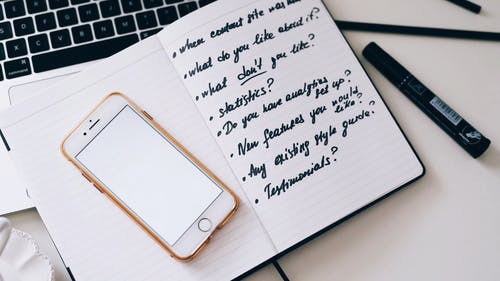 • when content site was
• what do you like about it?
• what don't you like?
• statistics?
• Do you have analytics set up?
• New features you would like?
• Any existing style guide?
• Testimonials?